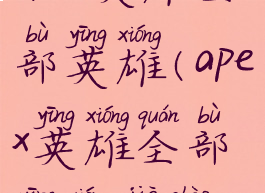 bù yīng xióng
部英雄(ape
yīng xióng quán bù
x英雄全部